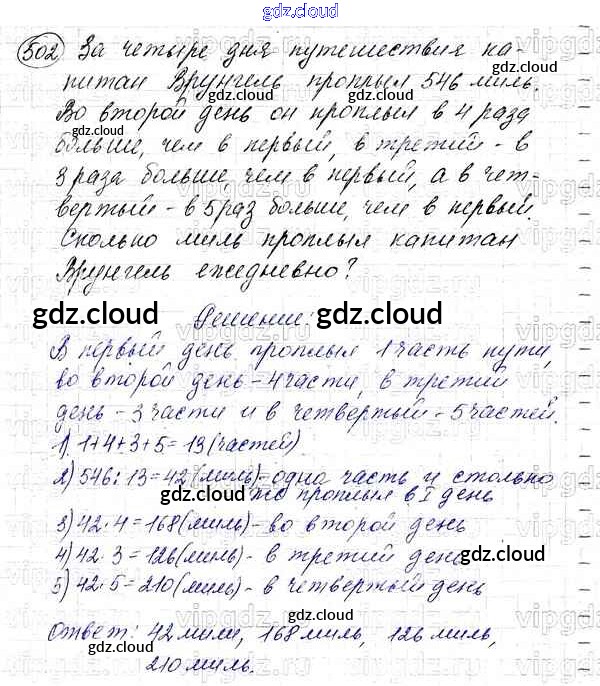 gdz.cloud
502 За четыре дня путешествия ка-
питан Врунгель проплыл 546 миль.
Во второй день он проплыл в 4 раза
больше, чем в первый, в третий - в
3 раза больше чем в первый, а в чет-
вертый - в 5 раз больше, чем в первый.
Сколько миль проплыл капитан
Врунгель ежедневно?
gdz.cloud Решение: gdz.cloud
В первый день проплыл 1 часть пути,
во второй день - 4 части, в третий
день - 3 части и в четвертый - 5 частей.
1) 1+4+3+5=13 (частей)
2) 546:13=42 (миль) - одна часть и столько
же проплыл в I день
3) 42·4=168 (миль) - во второй день
4) 42·3=126 (миль) - в третий день
5) 42·5=210 (миль) - в четвертый день
Ответ: 42 мили, 168 миль, 126 миль,
210 миль.